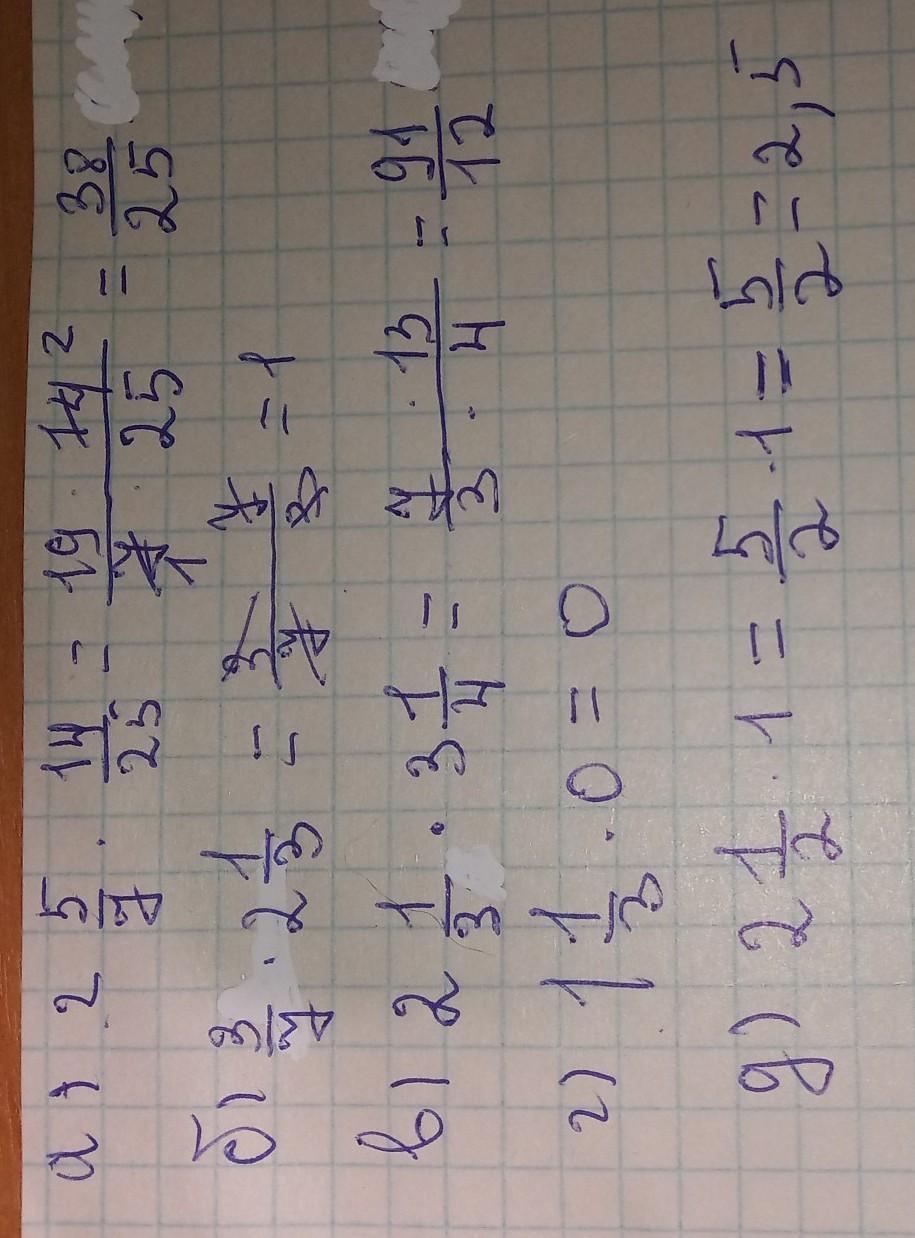 а) 2 5/7 · 14/25 = 19 · 14 2 / 7 1 · 25 = 38/25
б) 3/7 · 2 1/3 = 3/7 · 7/3 = 1
в) 2 1/3 · 3 1/4 = 7/3 · 13/4 = 91/12
г) 1 1/3 · 0 = 0
д) 2 1/2 · 1 = 5/2 · 1 = 5/2 = 2,5